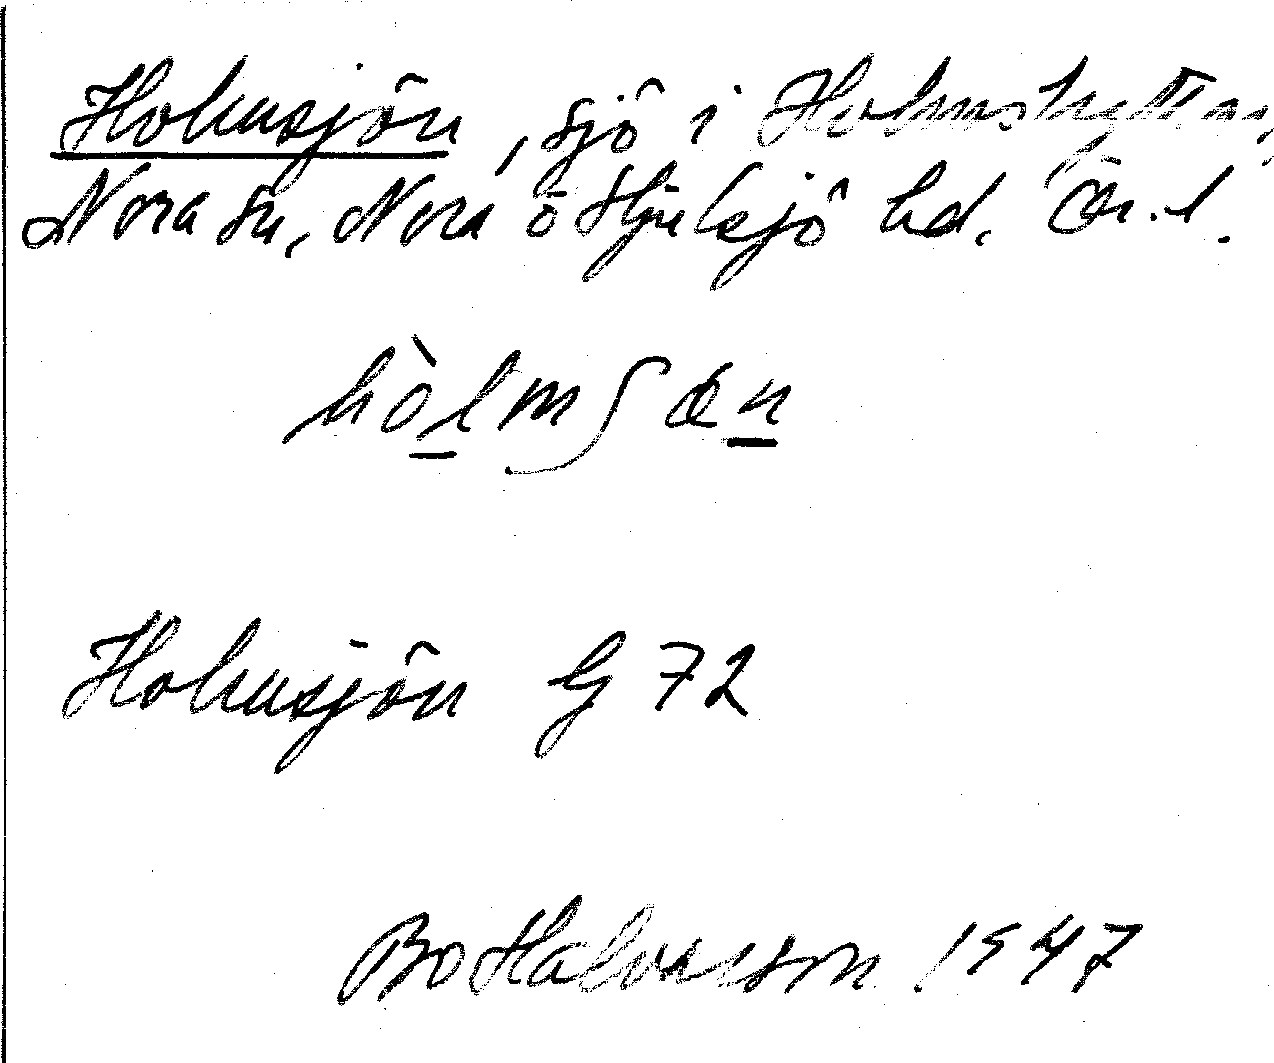 Holmsjön, sjö i Holmshyttan,
Nora sn, Nora o Hjulsjö hd. Ör. l.
hòlmʃœn
Holmsjön G 72
Bo Halvarson 1947